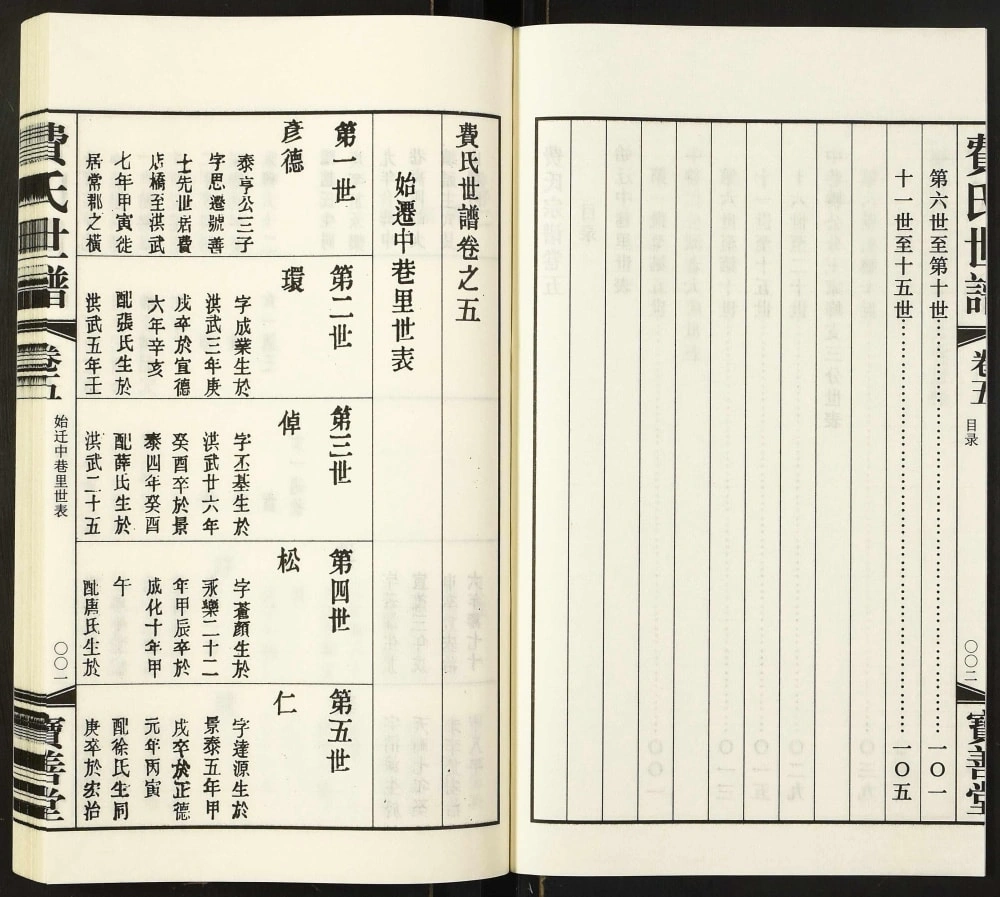 費氏世譜
卷五
目录
〇〇二
寶善堂
第六世至第十世……一〇一
十一世至十五世……一〇五
費氏世譜卷之五
始遷中巷里世表
第一世
彥德
泰亨公三子
字思遷號善
士先世居費
店橋至洪武
七年甲寅徙
居常郡之橫
第二世
環
字成業生於
洪武三年庚
戌卒於宣德
六年辛亥
配張氏生於
洪武五年壬
第三世
倬
字丕基生於
洪武廿六年
癸酉卒於景
泰四年癸酉
配薛氏生於
洪武二十五
第四世
松
字蒼顏生於
永樂二十二
年甲辰卒於
成化十年甲
午
配唐氏生於
第五世
仁
字達源生於
景泰五年甲
戌卒於正德
元年丙寅
配徐氏生同
庚卒於宏治
費氏世譜
卷五
始迁中巷里世表
〇〇一
寶善堂